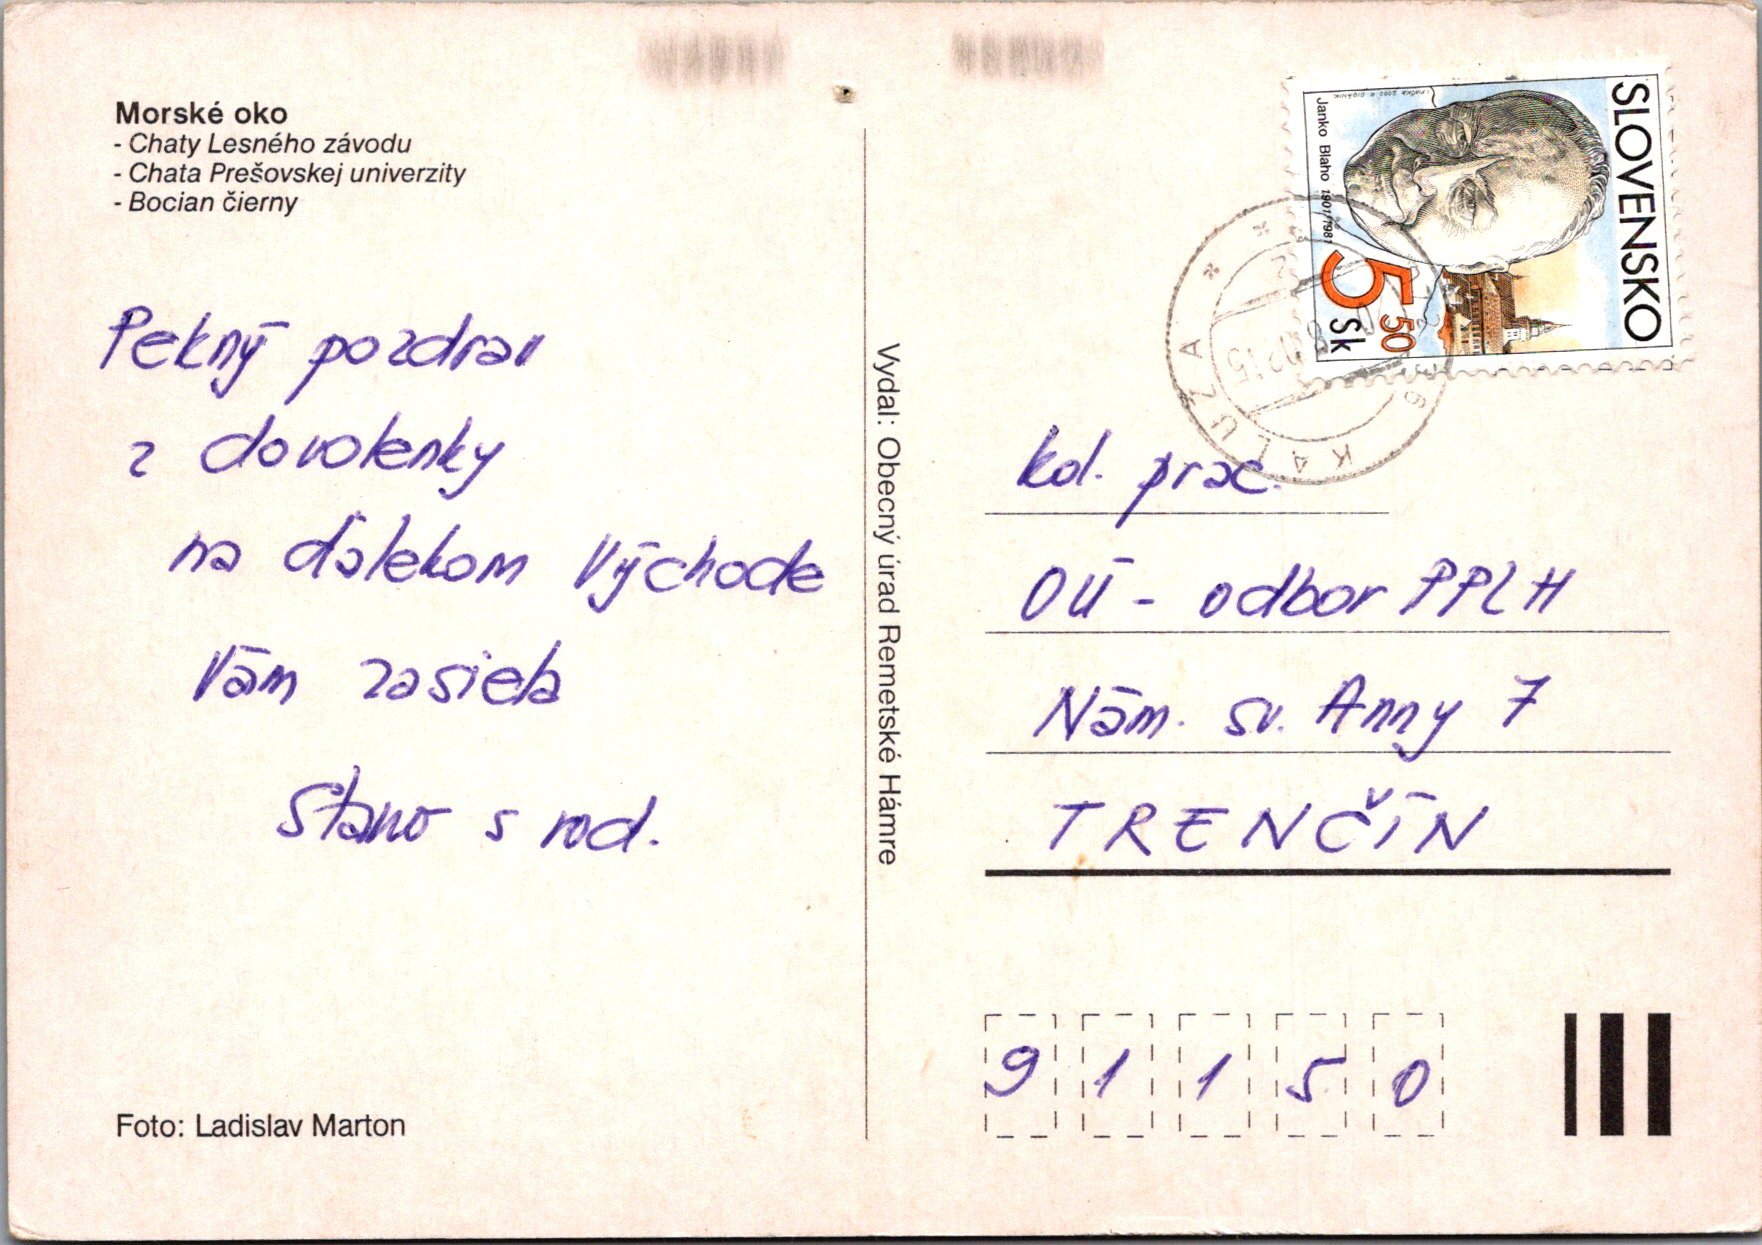 Morské oko
- Chaty Lesného závodu
- Chata Prešovskej univerzity
- Bocian čierny
Pekný pozdrav
z dovolenky
na ďalekom Východe
Vám zasiela
Stano s rod.
Foto: Ladislav Marton
Vydal: Obecný úrad Remetské Hámre
SLOVENSKO
Janko Blaho 1901/1981
5 50 Sk
KALUŽA
kol. prac.
OÚ - odbor PPLH
Nám. sv. Anny 7
TRENČÍN
9 1 1 5 0